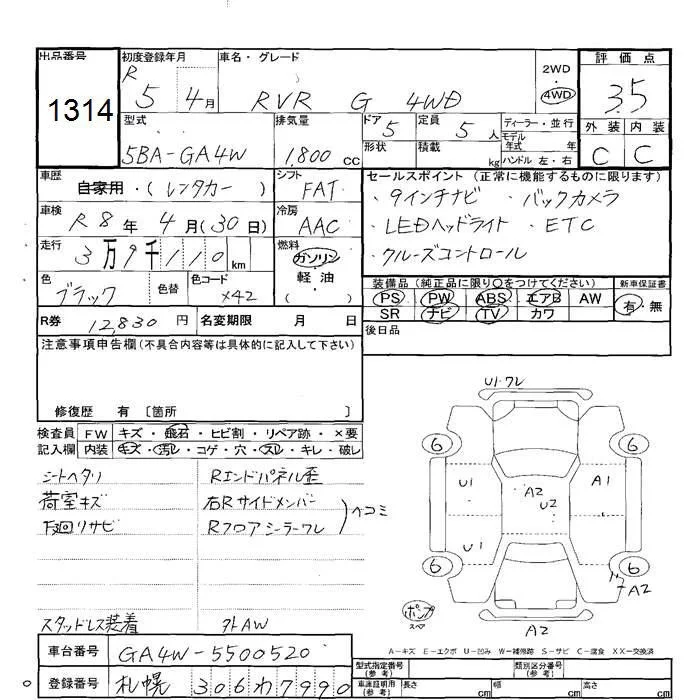 出品番号 初度登録年月 車名・グレード 評価点
1314 R 5 4月 RVR G 4WD 2WD 4WD 3.5
型式 排気量 ドア 5 定員 5人 ディーラー・並行 外装 内装
5BA-GA4W 1,800 cc 形状 積載 kg モデル年式 年 ハンドル 左・右 C C
車歴 自家用・(レンタカー) シフト FAT セールスポイント(正常に機能するものに限ります)
車検 R8年 4月(30日) 冷房 AAC ・9インチナビ ・バックカメラ
・LEDヘッドライト ・ETC
走行 3万9千110km 燃料 ガソリン 軽油 ( ) ・クルーズコントロール
色 ブラック 色替 色コード X42 装備品(純正品に限り○をつけてください) 新車保証書
PS PW ABS エアB AW 有・無
R券 12,830円 名変期限 月 日 SR ナビ TV カワ
後日品
注意事項申告欄(不具合内容等は具体的に記入して下さい)
修復歴 有〔箇所 〕
検査員記入欄 FW キズ・飛石・ヒビ割・リペア跡・×要
内装 キズ・汚レ・コゲ・穴・スレ・キレ・破レ
シートヘタリ RエンドパネルU歪
荷室キズ 右Rサイドメンバー
下廻リサビ Rフロアシーラーワレ ヘコミ
スタッドレス装着 外AW
U1・ワレ
6 6
U1 A2 A1
U2
U1
6 6
A2
ポンプ
スペア
A2
A-キズ E-エクボ U-凹み W-補修跡 S-サビ C-腐食 XX-交換済
車台番号 GA4W-5500520 型式指定番号(参考) 類別区分番号(参考)
登録番号 札幌 306わ7990 車庫証明用(参考) 長さ cm 幅 cm 高さ cm